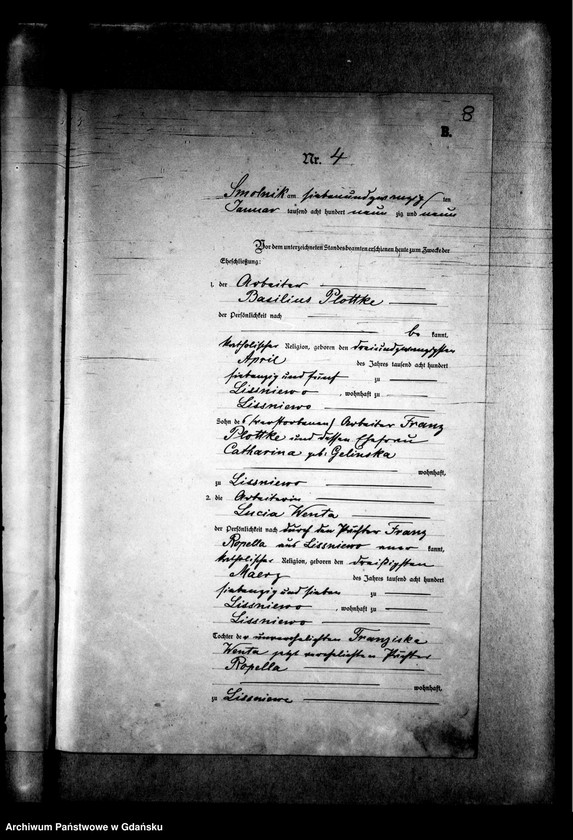 8
B.
Nr. 4
Smolnik am siebenundzwanzig ten
Januar tausend acht hundert neun zig und neun
Vor dem unterzeichneten Standesbeamten erschienen heute zum Zwecke der
Eheschließung:
1. der Arbeiter
Basilius Plottke
der Persönlichkeit nach
be kannt,
katholischer Religion, geboren den dreiundzwanzigsten
April des Jahres tausend acht hundert
siebenzig und fünf zu
Lissniewo, wohnhaft zu
Lissniewo
Sohn des (verstorbenen) Arbeiter Franz
Plottke und dessen Ehefrau
Catharina geb: Gelinska
wohnhaft,
zu Lissniewo
2. die Arbeiterin
Lucia Wenta
der Persönlichkeit nach durch den Pächter Franz
Ropella aus Lissniewo kannt,
katholischer Religion, geboren den dreißigsten
Maerz des Jahres tausend acht hundert
siebenzig und sieben zu
Lissniewo, wohnhaft zu
Lissniewo
Tochter der unverehelichten Franziska
Wenta jetzt verehelichten Pächter
Ropella
wohnhaft,
zu Lissniewo
Archiwum Państwowe w Gdańsku